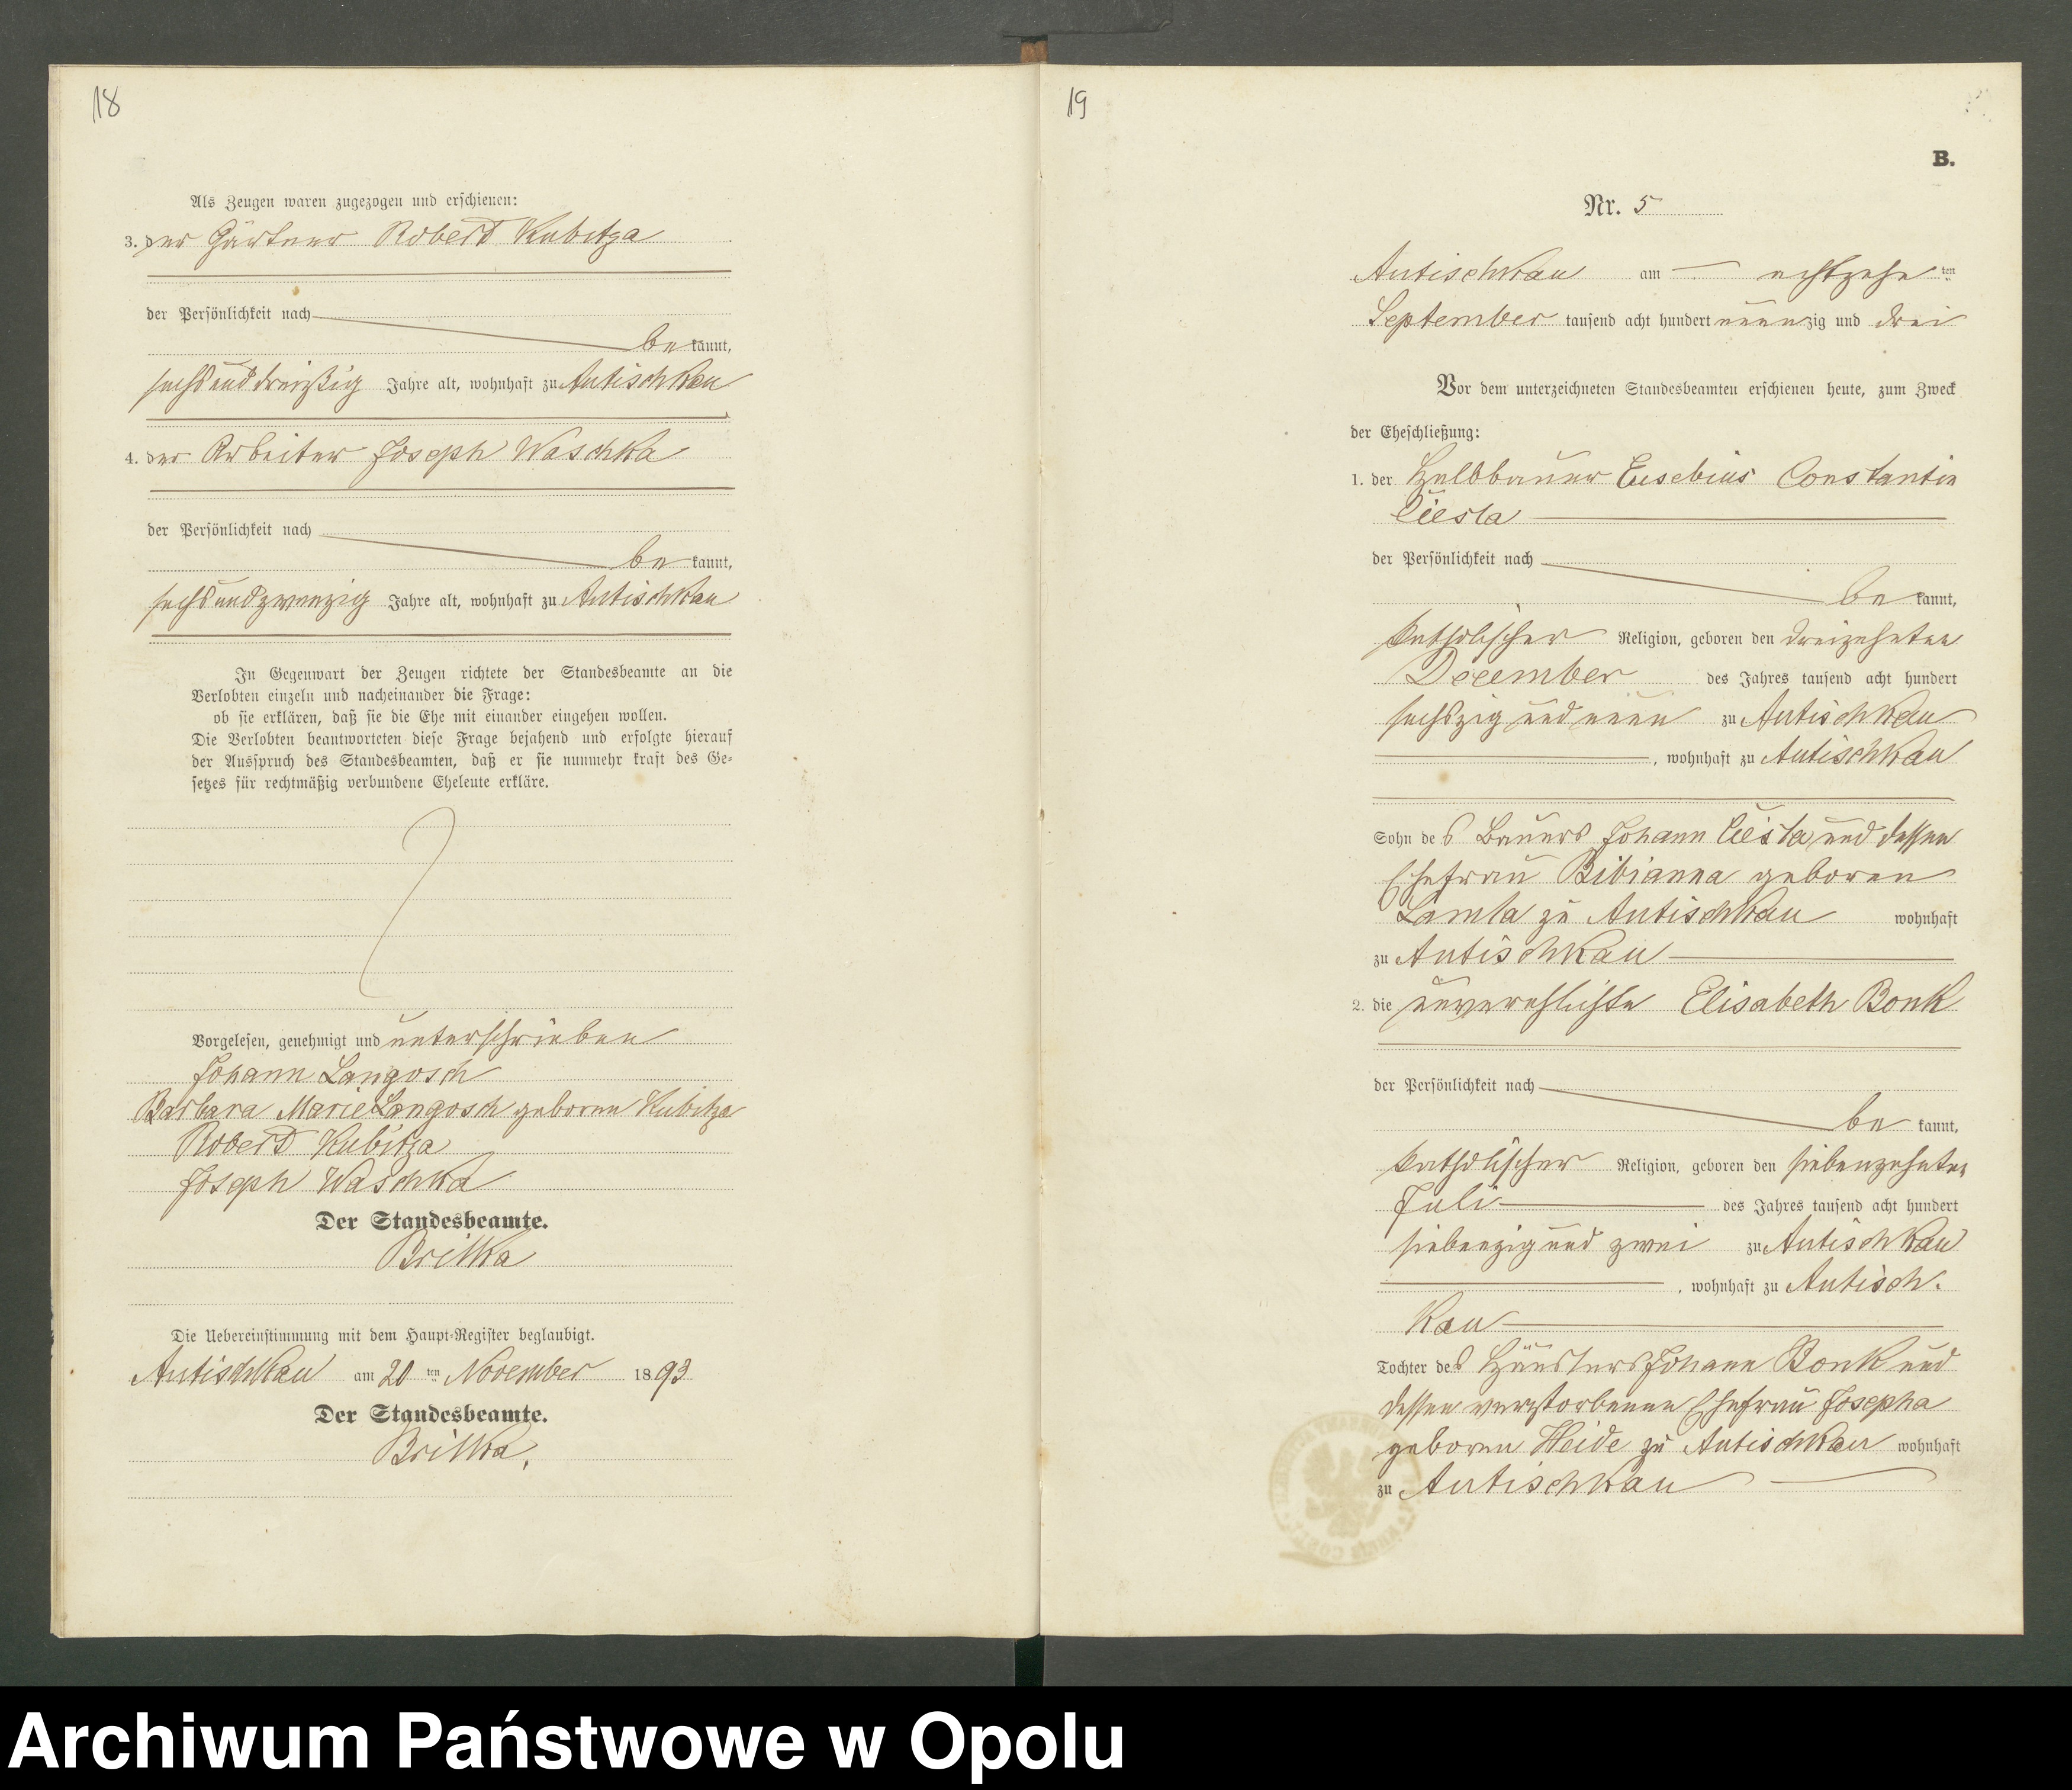 18
Als Zeugen waren zugezogen und erschienen:
3. der Gärtner Robert Kubitza
der Persönlichkeit nach
be kannt,
sechsunddreißig Jahre alt, wohnhaft zu Autischkau
4. der Arbeiter Joseph Waschka
der Persönlichkeit nach
be kannt,
sechsundzwanzig Jahre alt, wohnhaft zu Autischkau
In Gegenwart der Zeugen richtete der Standesbeamte an die
Verlobten einzeln und nacheinander die Frage:
ob sie erklären, daß sie die Ehe mit einander eingehen wollen.
Die Verlobten beantworteten diese Frage bejahend und erfolgte hierauf
der Ausspruch des Standesbeamten, daß er sie nunmehr kraft des Ge-
setzes für rechtmäßig verbundene Eheleute erkläre.
Vorgelesen, genehmigt und unterschrieben
Johann Langosch
Barbara Marie Langosch geboren Kubitza
Robert Kubitza
Joseph Waschka
Der Standesbeamte.
Brilka
Die Uebereinstimmung mit dem Haupt-Register beglaubigt.
Autischkau am 20 ten November 1893
Der Standesbeamte.
Brilka.
19
B.
Nr. 5
Autischkau am achtzehn ten
September tausend acht hundert neunzig und drei
Vor dem unterzeichneten Standesbeamten erschienen heute, zum Zweck
der Eheschließung:
1. der Halbbauer Eusebius Constantin
Ciesla
der Persönlichkeit nach
be kannt,
katholischer Religion, geboren den dreizehnten
December des Jahres tausend acht hundert
sechszig und neun zu Autischkau
, wohnhaft zu Autischkau
Sohn des Bauers Johann Ciesla und dessen
Ehefrau Bibianna geboren
Lamla zu Autischkau wohnhaft
zu Autischkau
2. die unverehlichte Elisabeth Bonk
der Persönlichkeit nach
be kannt,
katholischer Religion, geboren den siebenzehnten
Juli des Jahres tausend acht hundert
siebenzig und zwei zu Autischkau
, wohnhaft zu Autisch.
kau
Tochter des Häuslers Johann Bonk und
dessen verstorbenen Ehefrau Josepha
geboren Heide zu Autischkau wohnhaft
zu Autischkau
Archiwum Państwowe w Opolu